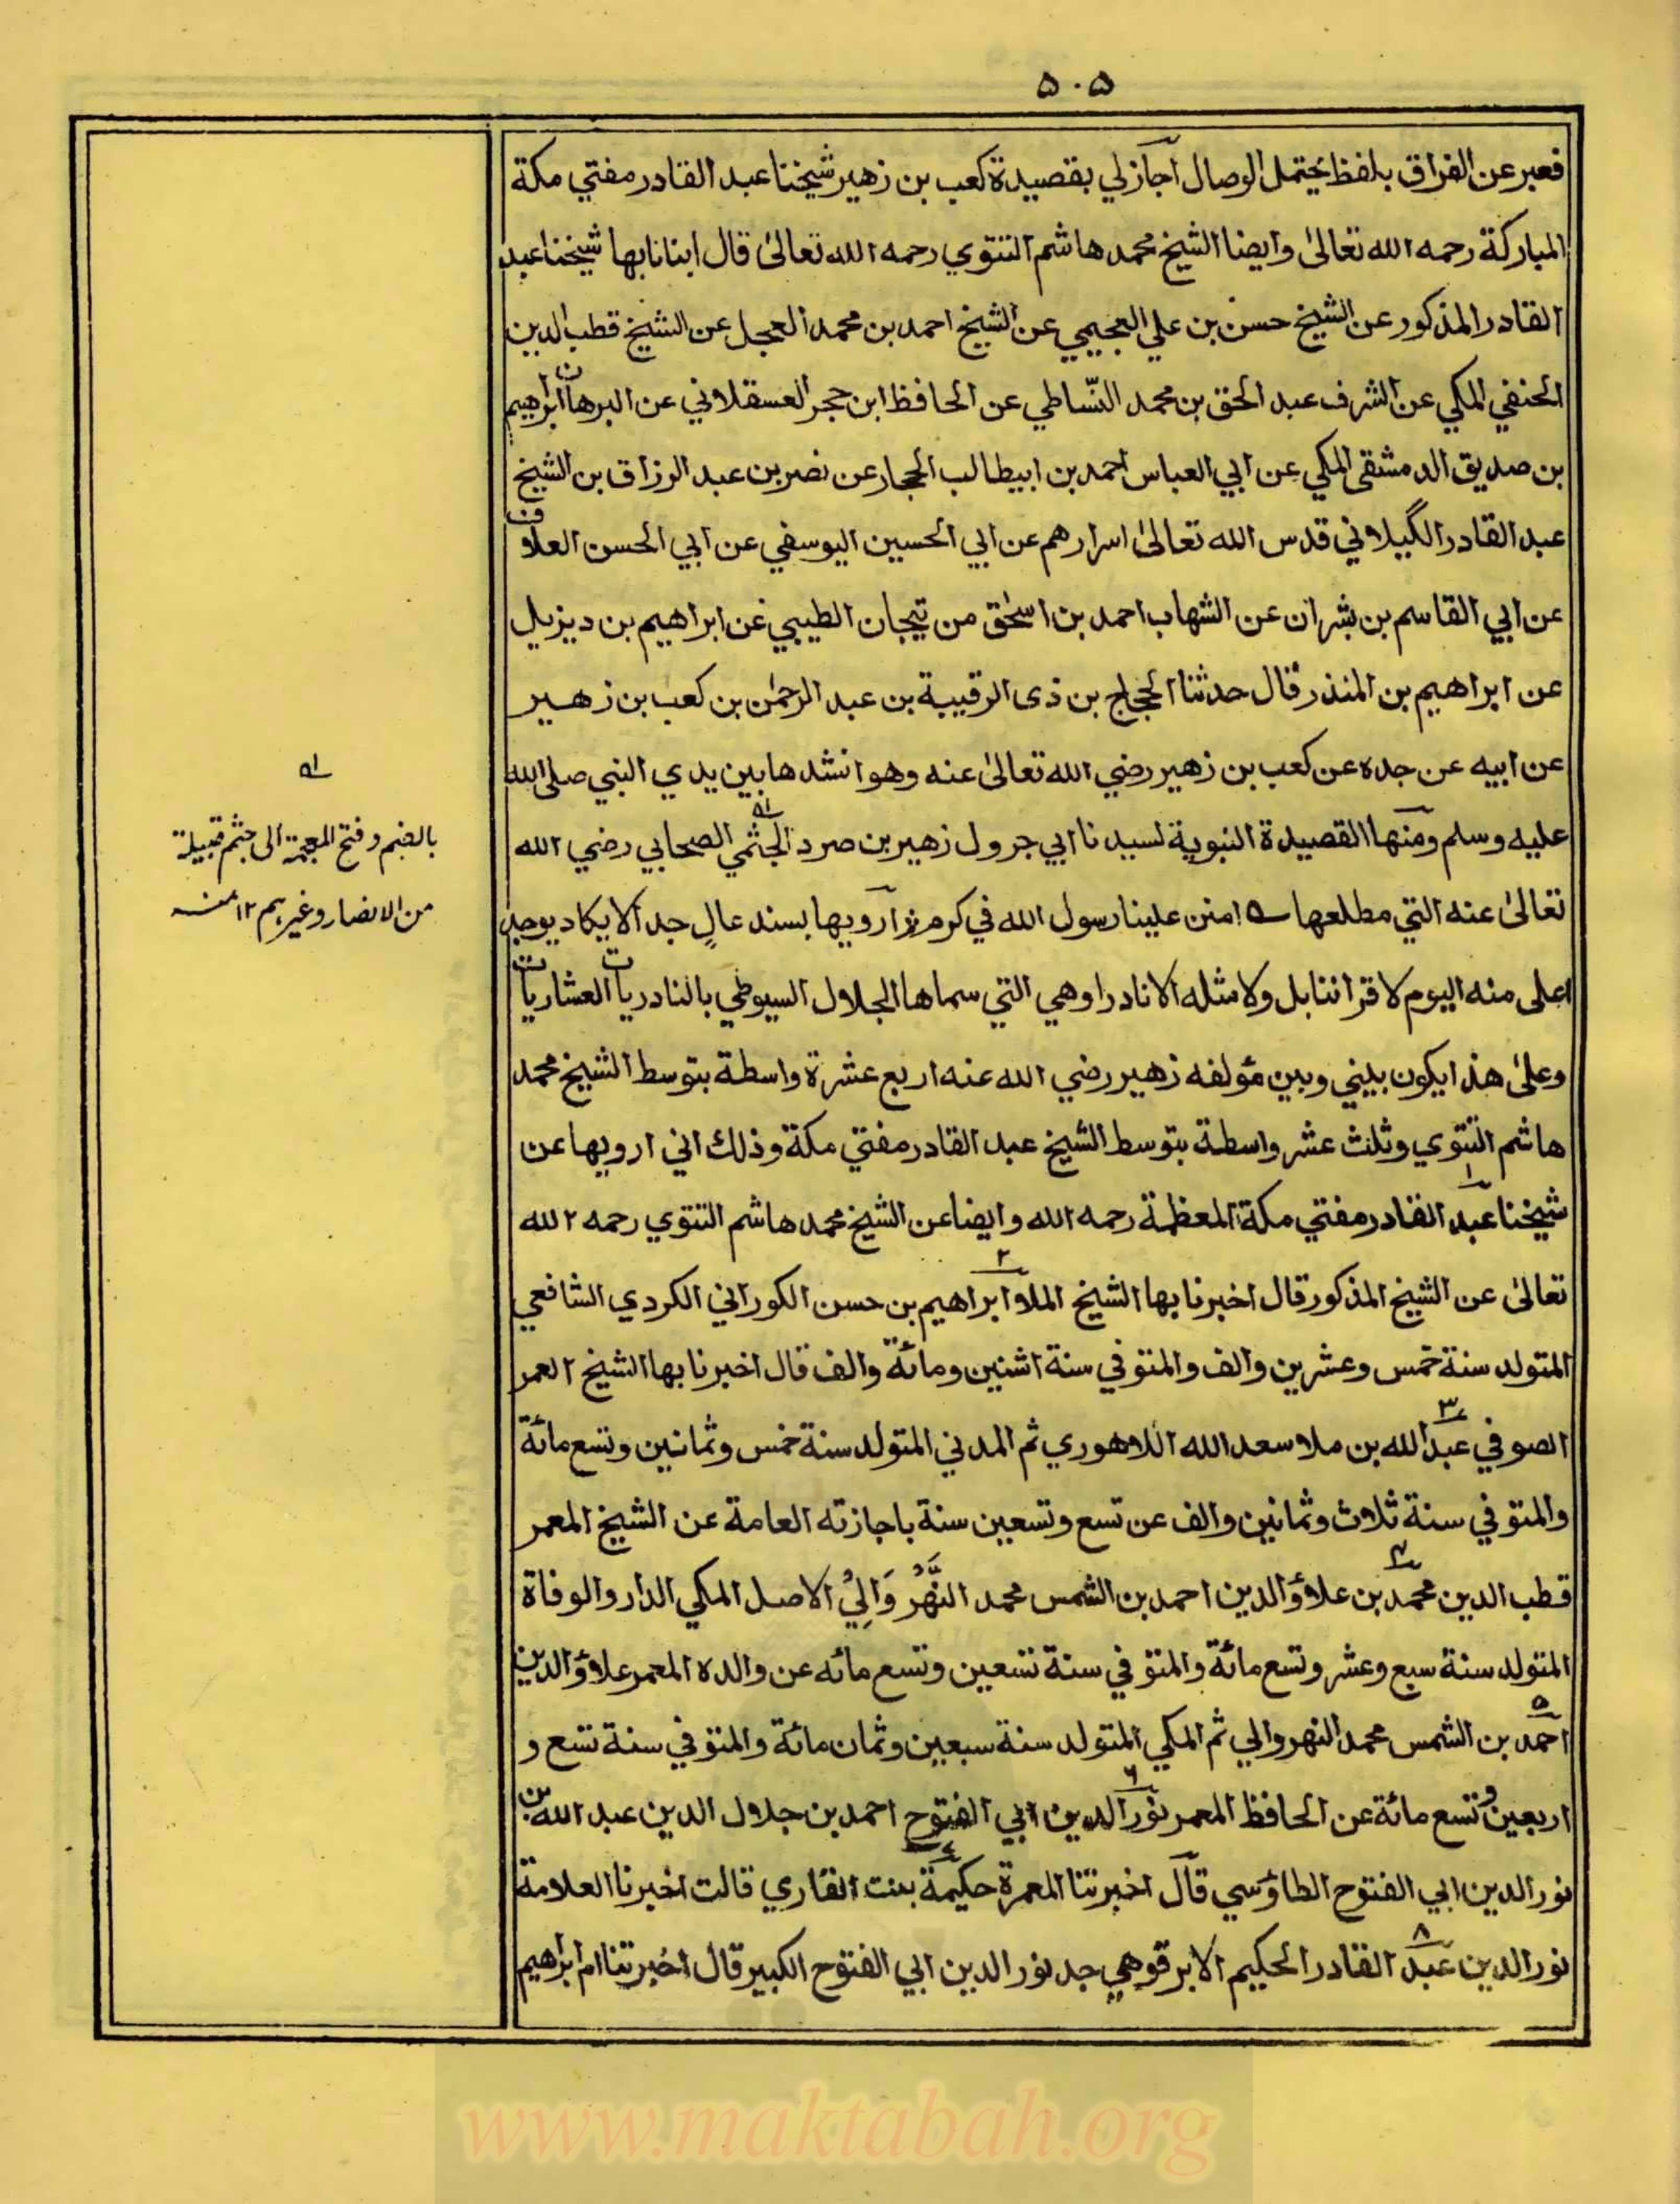 ٥٠٥
فعبر عن الفراق بلفظ يحتمل الوصال اجازلي بقصيدة كعب بن زهير شيخنا عبد القادر مفتي مكة
المباركة رحمه الله تعالىٰ وايضا الشيخ محمد هاشم التتوي رحمه الله تعالىٰ قال انبانا بها شيخنا عبد
القادر المذكور عن الشيخ حسن بن علي العجيمي عن الشيخ احمد بن محمد العجل عن الشيخ قطب الدين
الحنفي المكي عن الشرف عبد الحق بن محمد السنباطي عن الحافظ ابن حجر العسقلاني عن البرهان ابراهيم
بن صديق الدمشقى المكي عن ابي العباس احمد بن ابيطالب الحجار عن نصر بن عبد الرزاق بن الشيخ
عبد القادر الگيلاني قدس الله تعالىٰ اسرارهم عن ابي الحسين اليوسفي عن ابي الحسن العلاف
عن ابي القاسم بن بشران عن الشهاب احمد بن اسحٰق من تيجان الطيبي عن ابراهيم بن ديزيل
عن ابراهيم بن المنذر قال حدثنا الحجاج بن ذى الرقيبة بن عبد الرحمٰن بن كعب بن زهير
عن ابيه عن جده عن كعب بن زهير رضي الله تعالىٰ عنه وهو انشدها بين يدي النبي صلى الله
عليه وسلم ومنها القصيدة النبوية لسيدنا ابي جرول زهير بن صرد الجثمي الصحابي رضي الله
تعالىٰ عنه التي مطلعها ؎ امنن علينا رسول الله في كرم ؛ ارويها بسند عالٍ جدا لا يكاد يوجد
اعلى منه اليوم لا قراننا بل ولا مثله الا نادرا وهي التي سماها الجلال السيوطي بالنادريات العشاريات
وعلىٰ هذا يكون بيني وبين مؤلفه زهير رضي الله عنه اربع عشرة واسطة بتوسط الشيخ محمد
هاشم التتوي وثلث عشر واسطة بتوسط الشيخ عبد القادر مفتي مكة وذلك اني ارويها عن
شيخنا عبد القادر مفتي مكة المعظمة رحمه الله وايضا عن الشيخ محمد هاشم التتوي رحمه الله
تعالىٰ عن الشيخ المذكور قال اخبرنا بها الشيخ الملا ابراهيم بن حسن الكوراني الكردي الشافعي
المتولد سنة خمس وعشرين والف والمتوفي سنة اثنين ومائة والف قال اخبرنا بها الشيخ العمر
الصوفي عبد الله بن ملا سعد الله اللاهوري ثم المدني المتولد سنة خمس وثمانين وتسع مائة
والمتوفي سنة ثلاث وثمانين والف عن تسع وتسعين سنة باجازته العامة عن الشيخ المعمر
قطب الدين محمد بن علاؤ الدين احمد بن الشمس محمد النَّهْرُوَالِيْ الاصل المكي الدار والوفاة
المتولد سنة سبع وعشر وتسع مائة والمتوفي سنة تسعين وتسع مائه عن والده المعمر علاؤ الدين
احمد بن الشمس محمد النهروالي ثم المكي المتولد سنة سبعين وثمان مائة والمتوفي سنة تسع و
اربعين وتسع مائة عن الحافظ المعمر نور الدين ابي الفتوح احمد بن جلال الدين عبد الله بن
نور الدين ابي الفتوح الطاؤسي قال اخبرتنا المعمرة حكيمة بنت القاري قالت اخبرنا العلامة
نور الدين عبد القادر الحكيم الابرقوهي جد نور الدين ابي الفتوح الكبير قال اخبرتنا ام ابراهيم
بالضم وفتح المعجمة الى جثم قبيلة
من الانصار وغيرہم ١٢ منہ
www.maktabah.org